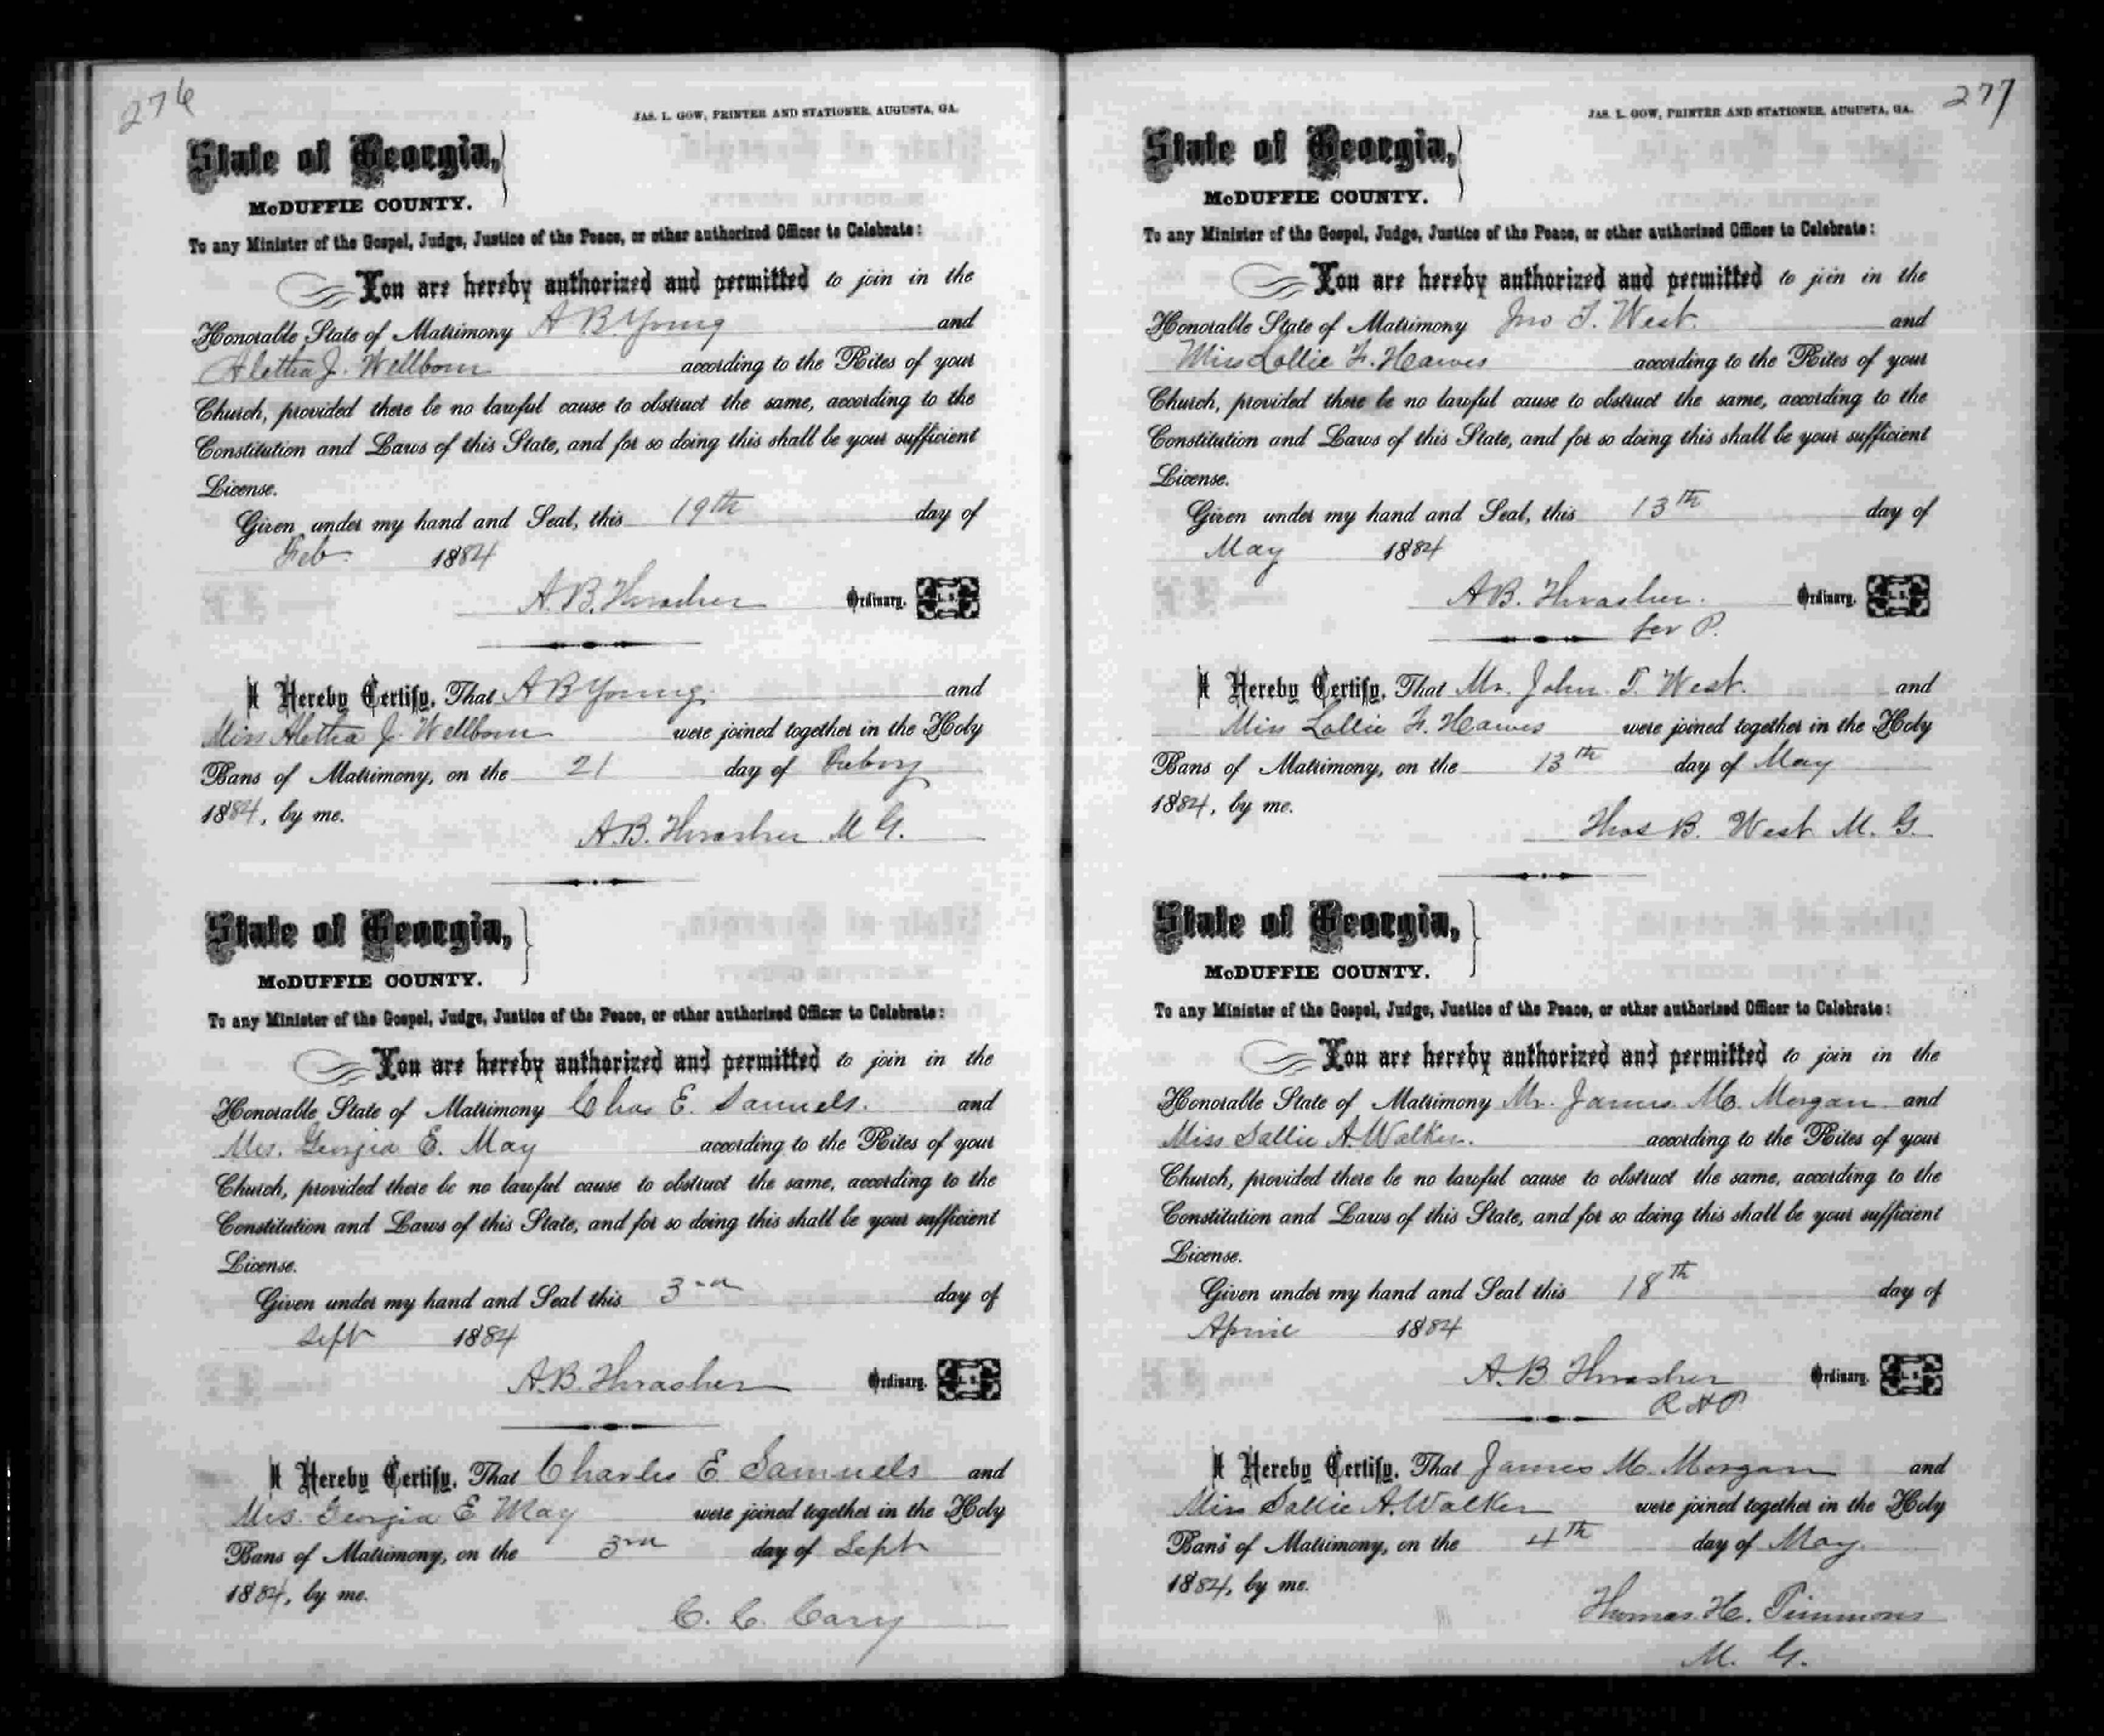 276
JAS. L. GOW, PRINTER AND STATIONER, AUGUSTA, GA.
State of Georgia,
McDUFFIE COUNTY.
To any Minister of the Gospel, Judge, Justice of the Peace, or other authorized Officer to Celebrate:
You are hereby authorized and permitted to join in the
Honorable State of Matrimony A B Young and
Alethia J. Wellborn according to the Rites of your
Church, provided there be no lawful cause to obstruct the same, according to the
Constitution and Laws of this State, and for so doing this shall be your sufficient
License.
Given under my hand and Seal, this 19th day of
Feb 1884
A. B. Thrasher Ordinary. L. S.
I Hereby Certify, That A B Young and
Miss Alethia J. Wellborn were joined together in the Holy
Bans of Matrimony, on the 21 day of Febry
1884, by me.
A. B. Thrasher M G.
State of Georgia,
McDUFFIE COUNTY.
To any Minister of the Gospel, Judge, Justice of the Peace, or other authorized Officer to Celebrate:
You are hereby authorized and permitted to join in the
Honorable State of Matrimony Chas E. Samuels. and
Mrs. Georgia E. May according to the Rites of your
Church, provided there be no lawful cause to obstruct the same, according to the
Constitution and Laws of this State, and for so doing this shall be your sufficient
License.
Given under my hand and Seal this 3rd day of
Sept 1884
A. B. Thrasher Ordinary. L. S.
I Hereby Certify, That Charles E Samuels and
Mrs. Georgia E May were joined together in the Holy
Bans of Matrimony, on the 3rd day of Sept
1884, by me.
C. C. Cary
277
JAS. L. GOW, PRINTER AND STATIONER, AUGUSTA, GA.
State of Georgia,
McDUFFIE COUNTY.
To any Minister of the Gospel, Judge, Justice of the Peace, or other authorized Officer to Celebrate:
You are hereby authorized and permitted to join in the
Honorable State of Matrimony Jno T. West. and
Miss Lollie F. Hawes according to the Rites of your
Church, provided there be no lawful cause to obstruct the same, according to the
Constitution and Laws of this State, and for so doing this shall be your sufficient
License.
Given under my hand and Seal, this 13th day of
May 1884
A B. Thrasher. Ordinary. L. S.
per P.
I Hereby Certify, That Mr. John T. West. and
Miss Lollie F. Hawes were joined together in the Holy
Bans of Matrimony, on the 13th day of May
1884, by me.
Thos B. West M. G.
State of Georgia,
McDUFFIE COUNTY.
To any Minister of the Gospel, Judge, Justice of the Peace, or other authorized Officer to Celebrate:
You are hereby authorized and permitted to join in the
Honorable State of Matrimony Mr. James M. Morgan and
Miss Sallie A. Walker. according to the Rites of your
Church, provided there be no lawful cause to obstruct the same, according to the
Constitution and Laws of this State, and for so doing this shall be your sufficient
License.
Given under my hand and Seal this 18th day of
April 1884
A. B Thrasher Ordinary. L. S.
R H P
I Hereby Certify, That James M. Morgan and
Miss Sallie A. Walker were joined together in the Holy
Bans of Matrimony, on the 4th day of May
1884, by me.
Thomas H. Timmons
M. G.